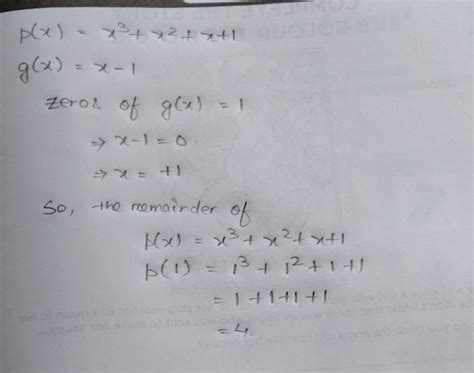 p(x) = x³ + x² + x + 1
g(x) = x - 1
zeros of g(x) = 1
⇒ x - 1 = 0
⇒ x = +1
So, the remainder of
p(x) = x³ + x² + x + 1
p(1) = 1³ + 1² + 1 + 1
= 1 + 1 + 1 + 1
= 4.